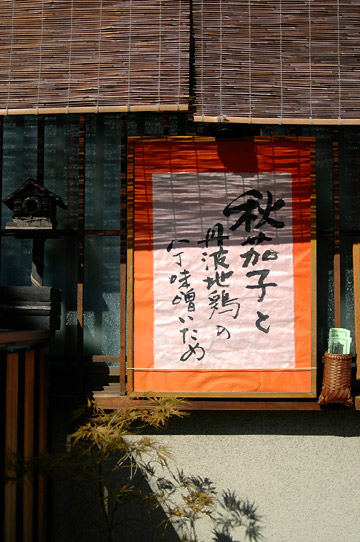 秋茄子と
丹波地鶏の
八丁味噌いため